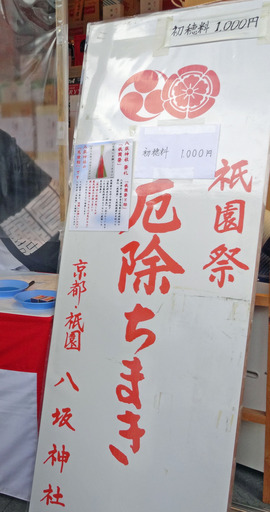 初穂料 1,000円
初穂料 1,000円
祇園祭
厄除ちまき
京都・祇園 八坂神社